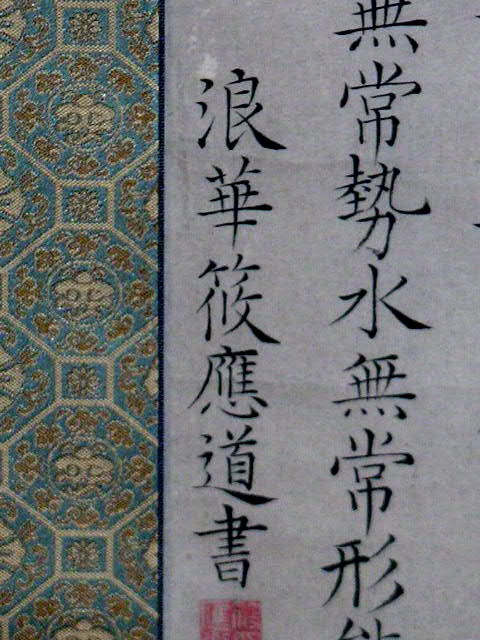 無常勢水無常形能
浪華筱應道書